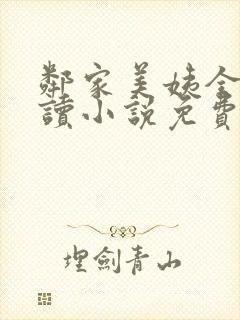 鄰家美姨全
讀小說免費
埋劍青山